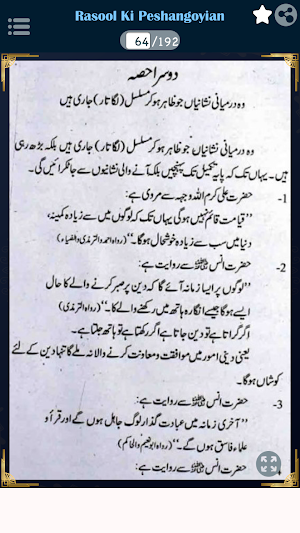 Rasool Ki Peshangoyian
64/192
دوسرا حصہ
وہ درمیانی نشانیاں جو ظاہر ہو کر مسلسل (لگاتار) جاری ہیں
وہ درمیانی نشانیاں جو ظاہر ہو کر مسلسل (لگاتار) جاری ہیں بلکہ بڑھ رہی
ہیں۔ یہاں تک کہ پایہ تکمیل تک پہنچیں بلکہ آنے والی نشانیوں سے جا ٹکرائیں گی۔
1- حضرت علی کرم اللہ وجہہ سے مروی ہے:
”قیامت قائم نہیں ہوگی یہاں تک کہ لوگوں میں سے زیادہ کمینہ،
دنیا میں سب سے زیادہ خوشحال ہوگا۔“ (رواہ احمد والترمذی والضیاء)
2- حضرت انس ﷺ سے روایت ہے:
”لوگوں پر ایسا زمانہ آئے گا کہ دین پر صبر کرنے والے کا حال
ایسے ہوگا جیسے انگارہ ہاتھ میں رکھنے والے کا۔“ (رواہ الترمذی)
اگر گراتا ہے تو دین جاتا ہے اگر رکھتا ہے تو ہاتھ جلتا ہے۔
یعنی دینی امور میں موافقت و معاونت کرنے والا نہ ملے گا تنہا دین کے لئے
کوشاں ہوگا۔
3- حضرت انس ﷺ سے روایت ہے:
”آخری زمانہ میں عبادت گذار لوگ جاہل ہوں گے اور قراء و
علماء فاسق ہوں گے۔“ (رواہ ابو نعیم والحاکم)
حضرت انس ﷺ سے روایت ہے: